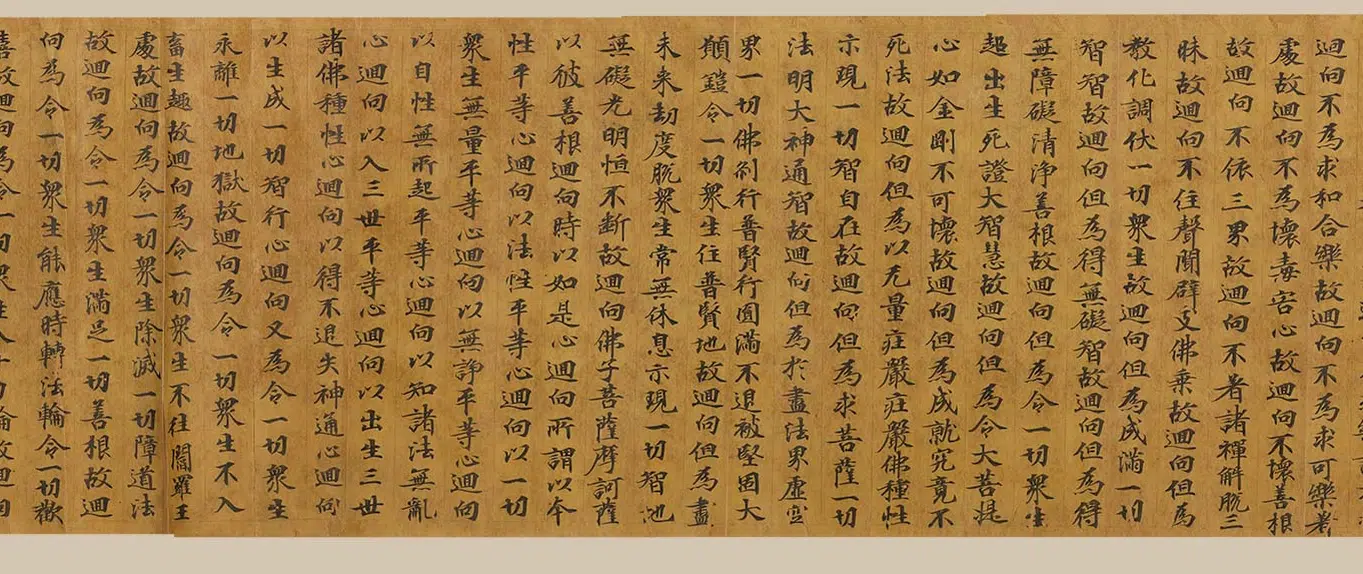 迴向不為求和合樂故迴向不為求可樂著
處故迴向不為壞毒害心故迴向不壞善根
故迴向不依三界故迴向不著諸禪解脫三
昧故迴向不住聲聞辟支佛乘故迴向但為
教化調伏一切衆生故迴向但為成滿一切
智智故迴向但為得無礙智故迴向但為得
無障礙清淨善根故迴向但為令一切衆生
超出生死證大智慧故迴向但為令大菩提
心如金剛不可壞故迴向但為成就究竟不
死法故迴向但為以无量莊嚴莊嚴佛種性
示現一切智自在故迴向但為求菩薩一切
法明大神通智故迴向但為於盡法界虛空
界一切佛刹行普賢行圓滿不退被堅固大
願鎧令一切衆生住普賢地故迴向但為盡
未来劫度脫衆生常無休息示現一切智地
無礙光明恒不断故迴向佛子菩薩摩訶薩
以彼善根迴向時以如是心迴向所謂以本
性平等心迴向以法性平等心迴向以一切
衆生無量平等心迴向以無諍平等心迴向
以自性無所起平等心迴向以知諸法無亂
心迴向以入三世平等心迴向以出生三世
諸佛種性心迴向以得不退失神通心迴向
以生成一切智行心迴向又為令一切衆生
永離一切地獄故迴向為令一切衆生不入
畜生趣故迴向為令一切衆生不往閻羅王
處故迴向為令一切衆生除滅一切障道法
故迴向為令一切衆生滿足一切善根故迴
向為令一切衆生能應時轉法輪令一切歡
喜故迴向為令一切衆生入十力輪故迴向